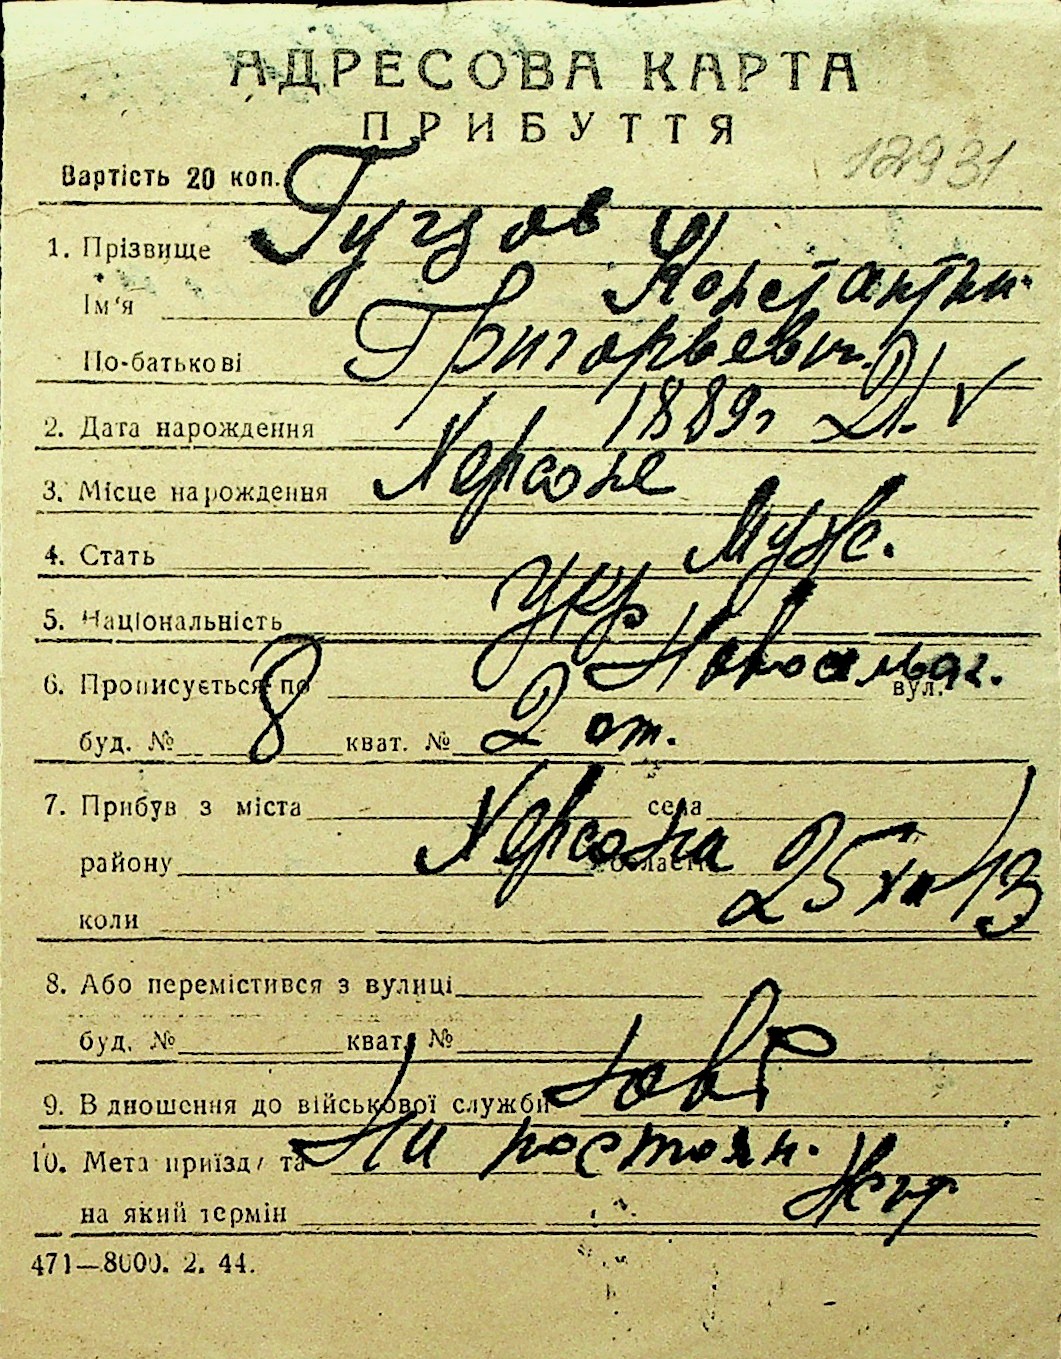 АДРЕСОВА КАРТА
ПРИБУТТЯ
12931
Вартість 20 коп.
1. Прізвище Гугзов
Ім'я Константин.
По-батькові Григорьевич.
2. Дата нарождення 1889г 21. V
3. Місце нарождення Херсоне
4. Стать Муж.
5. Національність Укр
6. Прописується по вул.
буд. № 8 кват. № 2 от.
7. Прибув з міста Херсона села
району області
коли 25 XII 13
8. Або перемістився з вулиці
буд. № кват. №
9. В дношення до військової служби
10. Мета приїзду та На постоян.
на який термін
471—8000. 2. 44.